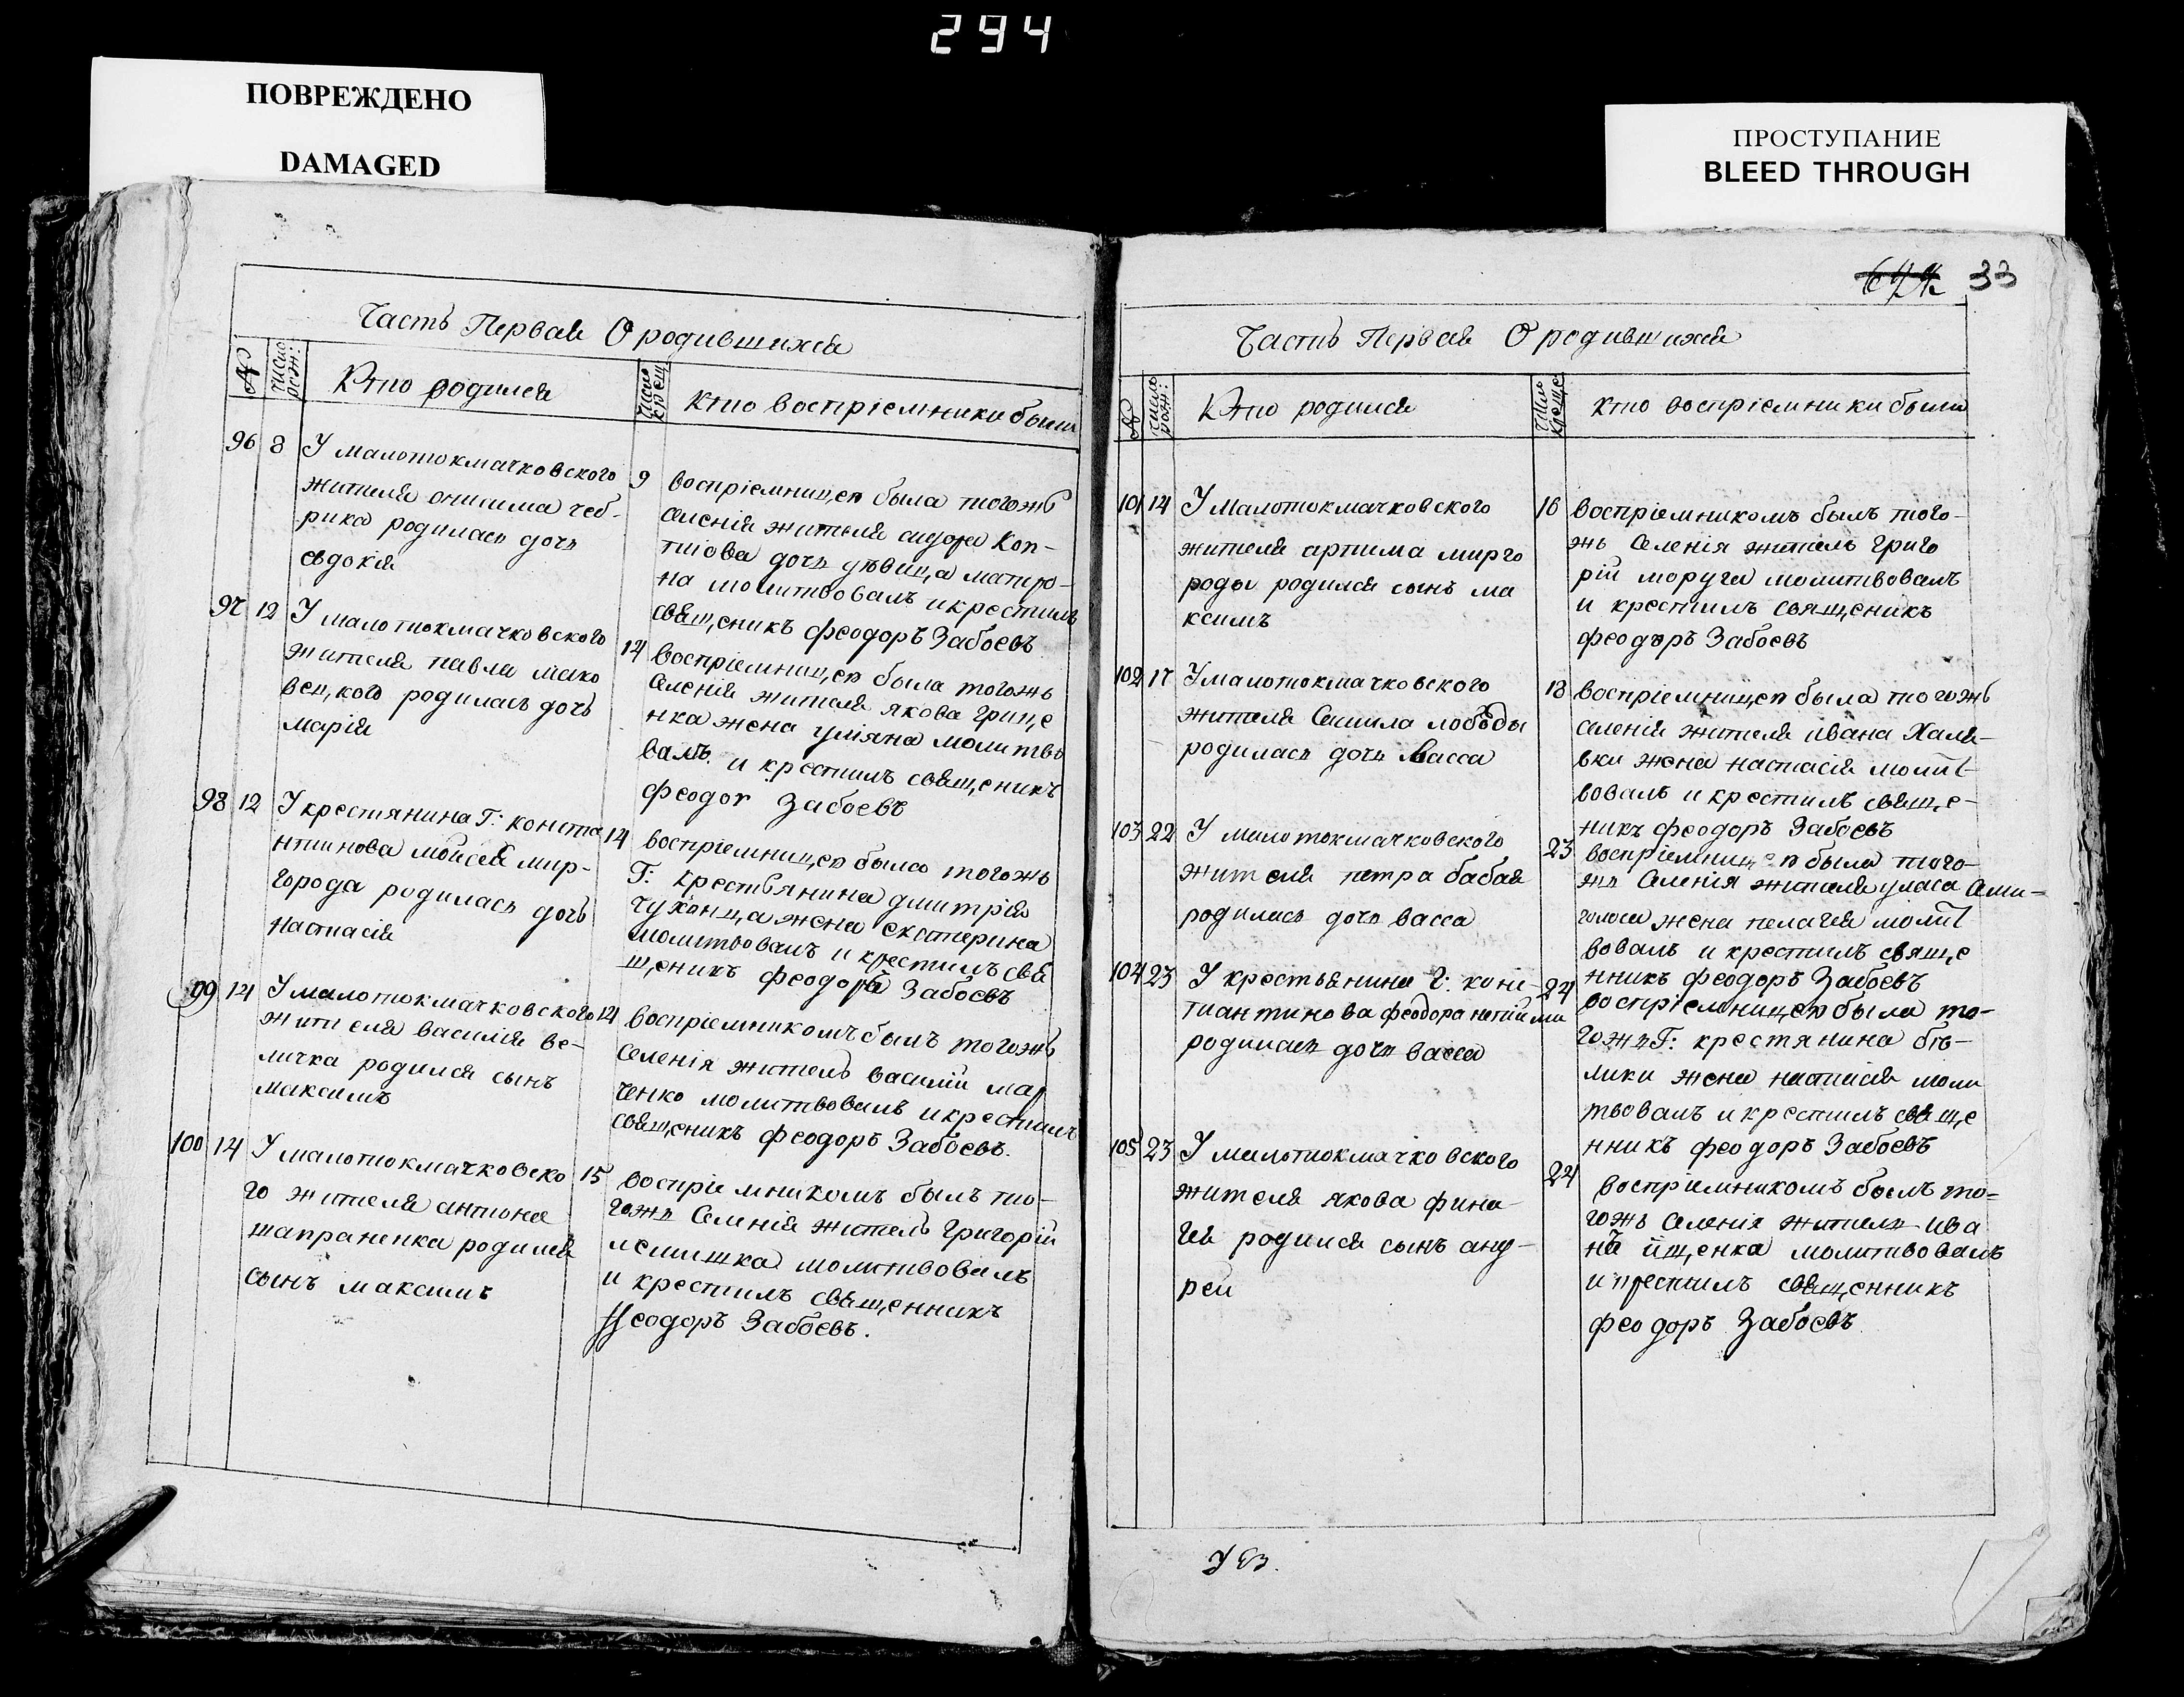 294
ПОВРЕЖДЕНО
DAMAGED
ПРОСТУПАНИЕ
BLEED THROUGH
Часть Первая О родившихся
№
число рож:
Кто родился
число крещ
кто воспріемники были
96 8 У малотокмачковского
жителя онисима чеб-
рика родилась дочь
евдокія
9 воспріемницею была тогожъ
селенія жителя сидора Коп-
тіова дочь дѣвица матро-
на молитвовалъ и крестилъ
священикъ феодоръ Забоевъ
97 12 У малотокмачковского
жителя павла мако
вецкого родилась дочь
марія
14 воспріемницею была тогожъ
селенія жителя якова грице
нка жена уліяна молитво
валъ и крестилъ священикъ
феодог Забоевъ
98 12 У крестянина Г: конста
нтинова моисея мир-
города родилась дочь
настасія
14 воспріемницею была тогожъ
Г: крестьянина дмитрія
чухонца жена екатерина
молитвовалъ и крестилъ свя
щеникъ феодоръ Забоевъ
99 14 У малотокмачковского
жителя василія ве-
личка родился сынъ
максимъ
14 воспріемникомъ былъ тогожъ
селенія житель василій мар
ченко молитвовалъ и крестилъ
священикъ феодоръ Забоевъ.
100 14 У малотокмачковско
го жителя антона
шапраненка родился
сынъ максимъ
15 воспріемникомъ былъ то-
гожъ Селенія житель Григорій
лемишка молитвовалъ
и крестилъ священникъ
феодоръ Забоевъ.
33
Часть Первая О родившихся
№
число рож:
Кто родился
число креще
кто воспріемники были
101 14 У малотокмачковского
жителя артима мирго
роды родился сынъ ма
ксимъ
16 воспріемникомъ былъ того-
жъ Селенія житель григо
рій моруга молитвовалъ
и крестилъ священикъ
феодоръ Забоевъ
102 17 У малотокмачковского
жителя лободы
родилась дочь васса
18 воспріемницею была тогожъ
селенія жителя ивана Халя-
вки жена настасія молит
вовалъ и крестилъ свяще-
никъ феодоръ Забоевъ
103 22 У малотокмачковского
жителя петра бабая
родилась дочь васса
23 воспріемницею была того-
жъ Селенія жителя уласа Семи-
голоса жена пелагея молит
вовалъ и крестилъ свяще
нникъ феодоръ Забоевъ
104 23 У крестьянина Г: конс-
тиантинова феодора
родилась дочь васса
24 воспріемницею была то-
гожъ Г: крестянина бѣ-
лики жена настасія моли
твовалъ и крестилъ свяще
нникъ феодоръ Забоевъ
105 23 У малотокмачковского
жителя якова фина-
гея родился сынъ анд-
рей
24 воспріемникомъ былъ то-
гожъ Селенія житель ива
нъ ищенка молитвовалъ
и крестилъ священникъ
феодоръ Забоевъ